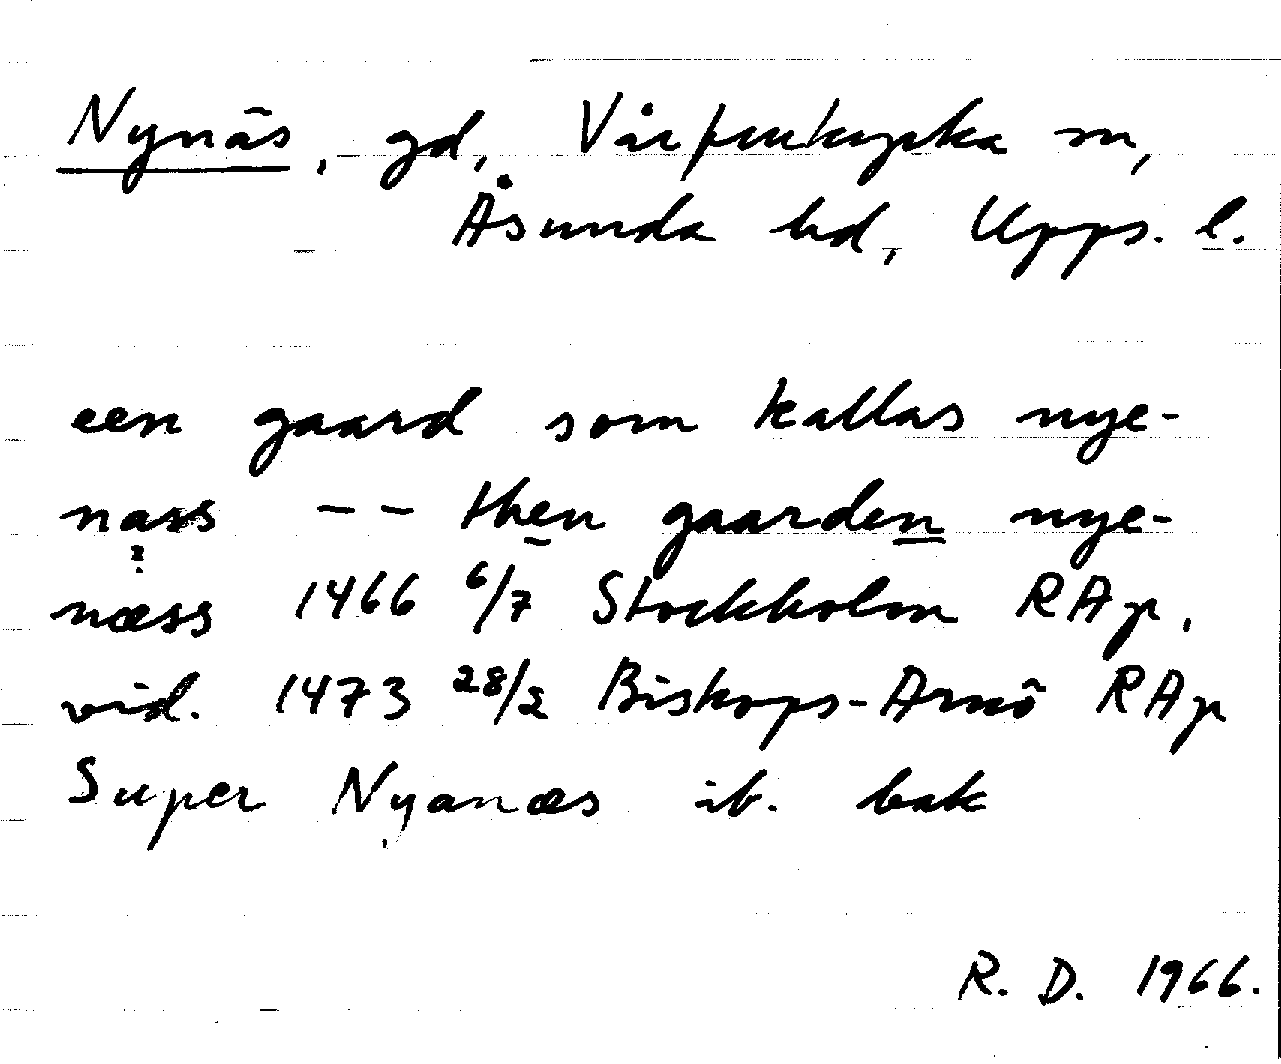 Nynäs, gd, Vårfrukyrka sn,
Åsunda hd, Upps. l.
een gaard som kallas nye-
nass -- then gaarden nye-
næss 1466 6/7 Stockholm RAp.
vid. 1473 28/2 Biskops-Arnö RAp
Super Nyanæs ib. bak
R. D. 1966.